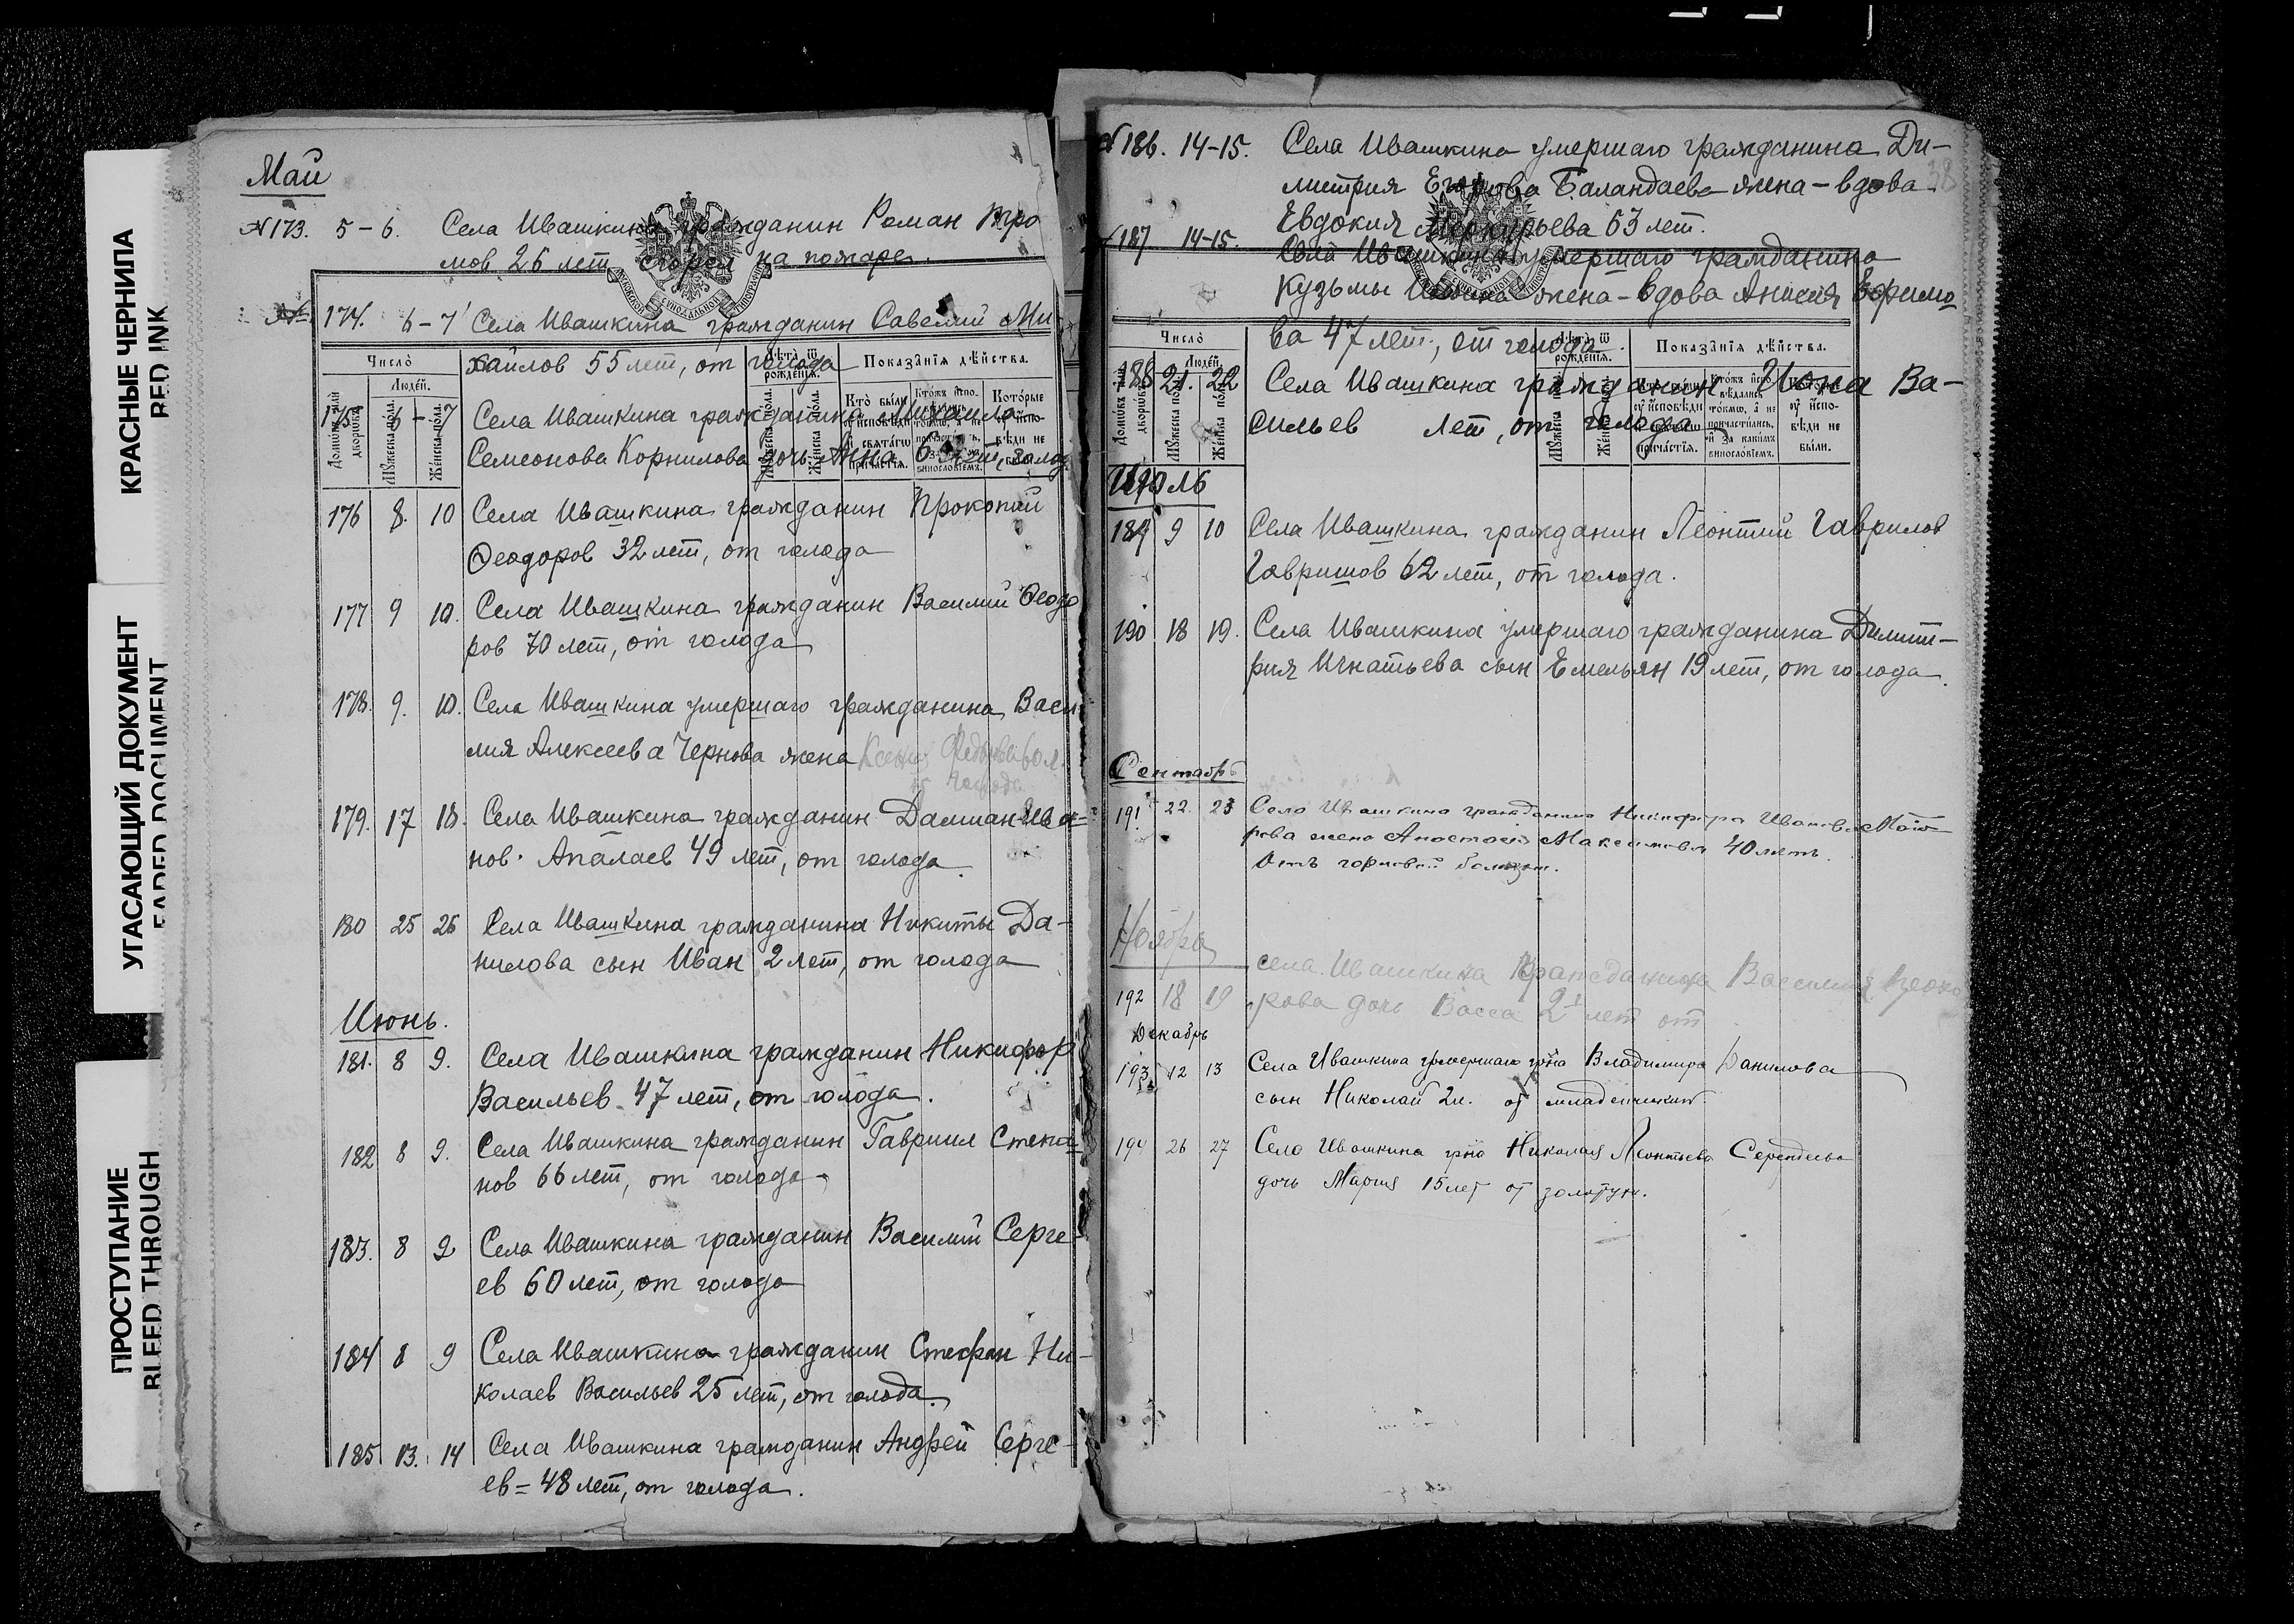 КРАСНЫЕ ЧЕРНИЛА
RED INK
УГАСАЮЩИЙ ДОКУМЕНТ
FADED DOCUMENT
ПРОСТУПАНИЕ
BLEED THROUGH
Май
№173. 5-6. Села Ивашкина гражданин Роман Тро
мов 26 лет сгорел на пожаре.
174. 6-7 Села Ивашкина гражданин Савелий Ми-
хайлов 55 лет, от голода
Число
Людей.
Лѣта ѿ рождения.
Показанїя дѣйства.
175 6-7 Села Ивашкина гражданина Михаила
Семеонова Корнилова дочь Анна 6 лет, голод
176 8. 10 Села Ивашкина гражданин Прокопий
Феодоров 32 лет, от голода
177 9 10. Села Ивашкина гражданин Василий Феодо
ров 70 лет, от голода
178. 9. 10. Села Ивашкина умершаго гражданина Васи
лия Алексеева Чернова жена Ксения
179. 17 18. Села Ивашкина гражданин Дамиан Ива-
нов Апалаев 49 лет, от голода.
180 25 26 Села Ивашкина гражданина Никиты Да-
нилова сын Иван 2 лет, от голода
Июнь.
181. 8 9. Села Ивашкина гражданин Никифор
Васильев 47 лет, от голода.
182 8 9. Села Ивашкина гражданин Гавриил Степа
нов 66 лет, от голода
183. 8 9 Села Ивашкина гражданин Василий Серге
ев 60 лет, от голода
184 8 9 Села Ивашкина гражданин Стефан Ни-
колаев Васильев 25 лет, от голода.
185 13. 14 Села Ивашкина гражданин Андрей Серге-
ев = 48 лет, от голода.
38
№186. 14-15. Села Ивашкина умершаго гражданина Ди-
митрия Егорова Баландаева жена - вдова
Евдокия Меркурьева 63 лет.
187 14-15. Села Ивашкина умершаго гражданина
Кузьмы жена - вдова Анисия Ефимо
ва 47 лет, от голода.
Число
Людей.
Лѣта ѿ рождения.
Показанїя дѣйства.
188 21. 22 Села Ивашкина гражданин Иона Ва-
сильев лет, от голода
Июль
189 9 10 Села Ивашкина гражданин Леонтий Гаврилов
Гавришов 62 лет, от голода.
190 18 19. Села Ивашкина умершаго гражданина Димит-
рия Игнатьева сын Емельян 19 лет, от голода.
Сентябрь
191 22. 23 Села Ивашкина гражданина Никифора Иванова
жена Анастасия Максимова 40 летъ.
Отъ горловой болезни.
Ноябрь
192 18 19 села Ивашкина гражданина Василия
дочь Васса 2 лет от
Декабрь
193 12 13 Села Ивашкина умершаго гр-на Владимира Данилова
сын Николай 2 н. от младенческих.
194 26 27 Села Ивашкина гр-на Николая Леонтьева
дочь Мария 15 лет от золотухи.